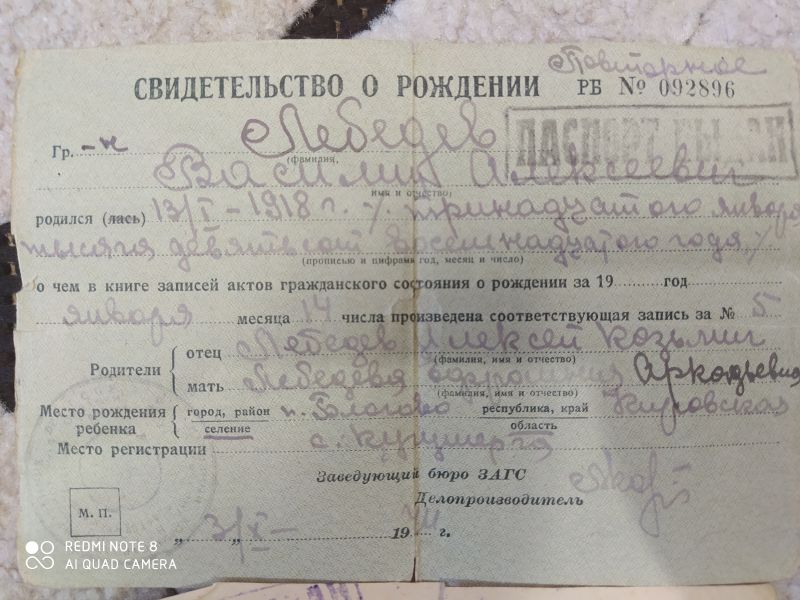 Повторное
СВИДЕТЕЛЬСТВО О РОЖДЕНИИ РБ № 092896
ПАСПОРТ ВЫДАН
Гр. -н Лебедев
(фамилия,
Василий Алексеевич
имя и отчество)
родился (лась) 13/I - 1918 г. /. тринадцатого января
тысяча девятьсот восемнадцатого года/
(прописью и цифрами год, месяц и число)
о чем в книге записей актов гражданского состояния о рождении за 19 год
января месяца 14 числа произведена соответствующая запись за № 5
Родители
отец Лебедев Алексей Козьмич
(фамилия, имя и отчество)
мать Лебедева Аркадьевна
(фамилия, имя и отчество)
Место рождения ребенка
город, район
селение
республика, край
область
Кировская
Место регистрации с.
Заведующий бюро ЗАГС
Делопроизводитель
М. П.
„ 3/XI- " 19 г.
REDMI NOTE 8
AI QUAD CAMERA